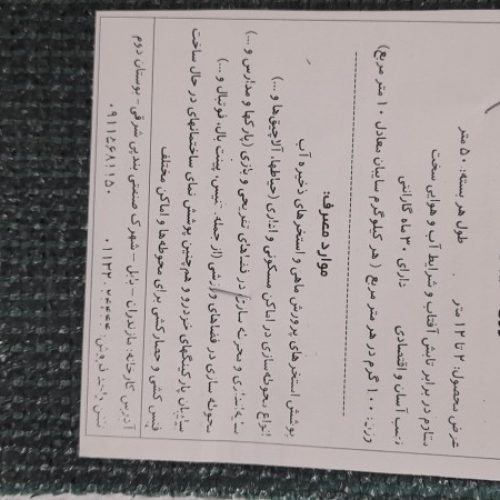 عرض محصول: ۲ تا ۱۲ متر طول هر بسته: ۵۰ متر
مقاوم در برابر تابش آفتاب و شرایط آب و هوایی سخت
نصب آسان و اقتصادی دارای ۳۰ ماه گارانتی
وزن: ۱۰۰ گرم در هر متر مربع ( هر کیلوگرم سایبان معادل ۱۰ متر مربع)
موارد مصرف:
پوشش استخرهای پرورش ماهی و استخرهای ذخیره آب
انواع محوطه سازی در اماکن مسکونی و اداری (حیاطها، آلاچیق‌ها و...)
سایه اندازی و محوطه سازی در فضاهای تفریحی و بازی (پارکها و مدارس و...)
محوطه سازی در فضاهای ورزشی (از جمله، تنیس، پینت بال، فوتبال و...)
سایبان پارکینگهای خودرو و همچنین پوشش نمای ساختمانهای در حال ساخت
فنس کشی و حصارکشی برای محوطه ها و اماکن مختلف
آدرس کارخانه: مازندران - بابل - شهرک صنعتی بندپی شرقی - بوستان دوم
تلفن واحد فروش: